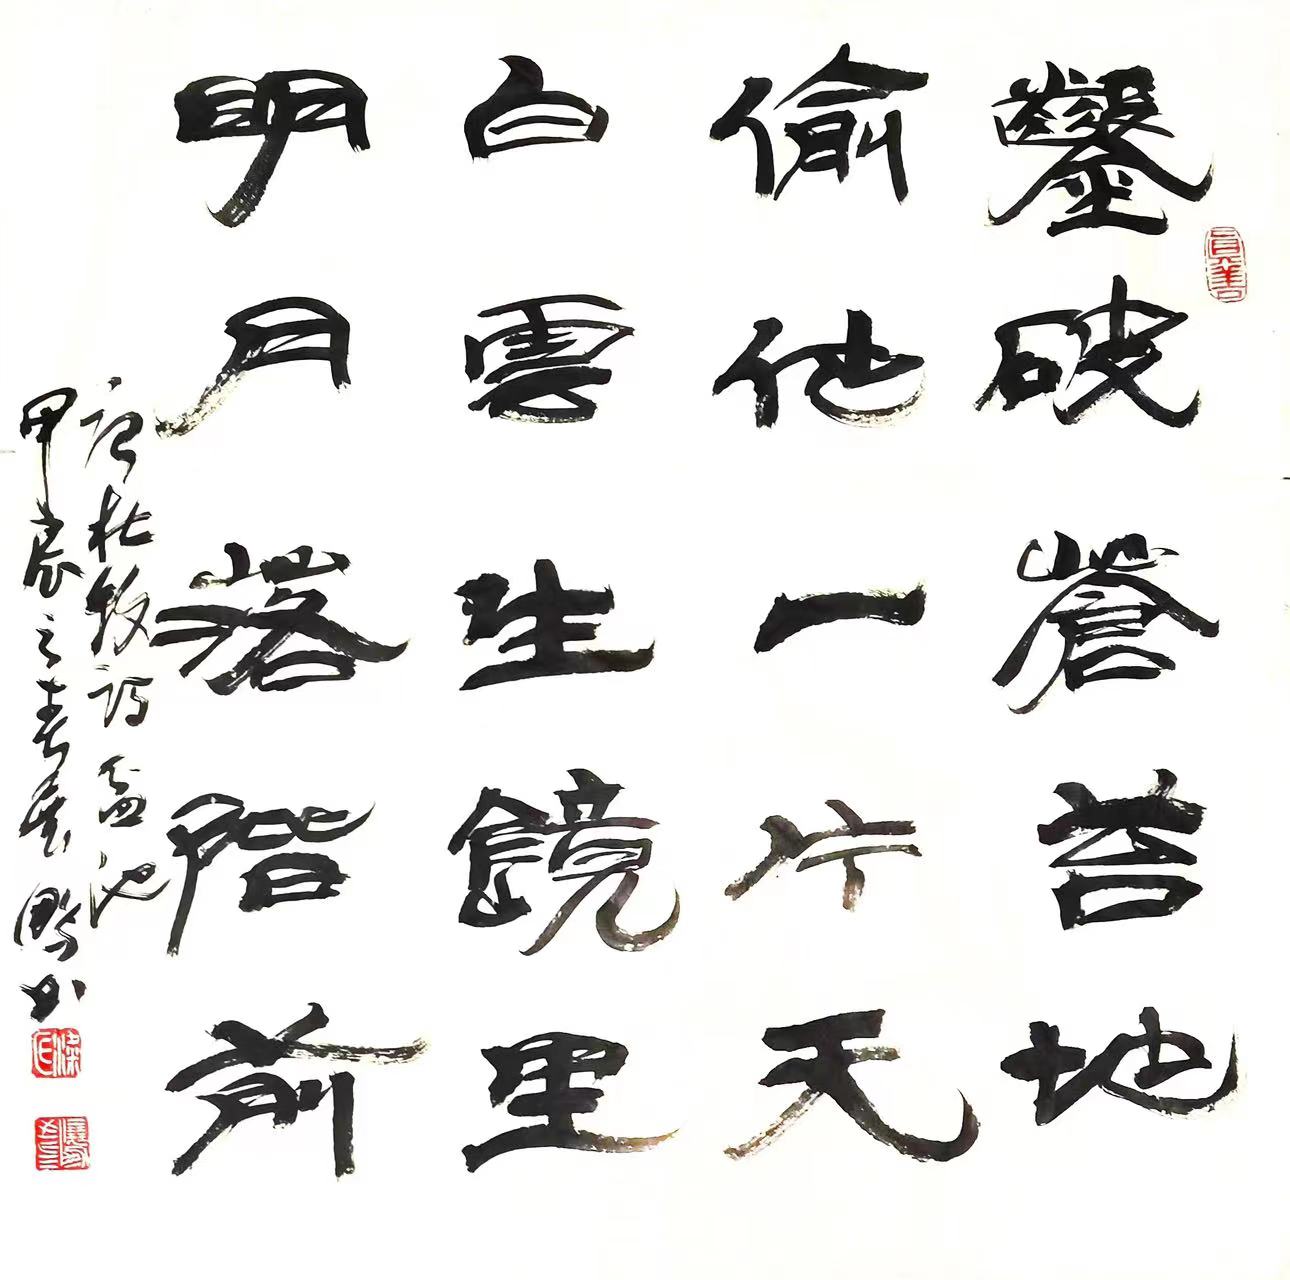 鑿破蒼苔地
偷他一片天
白雲生鏡里
明月落階前
唐杜牧詩盆池
甲辰之春月
书